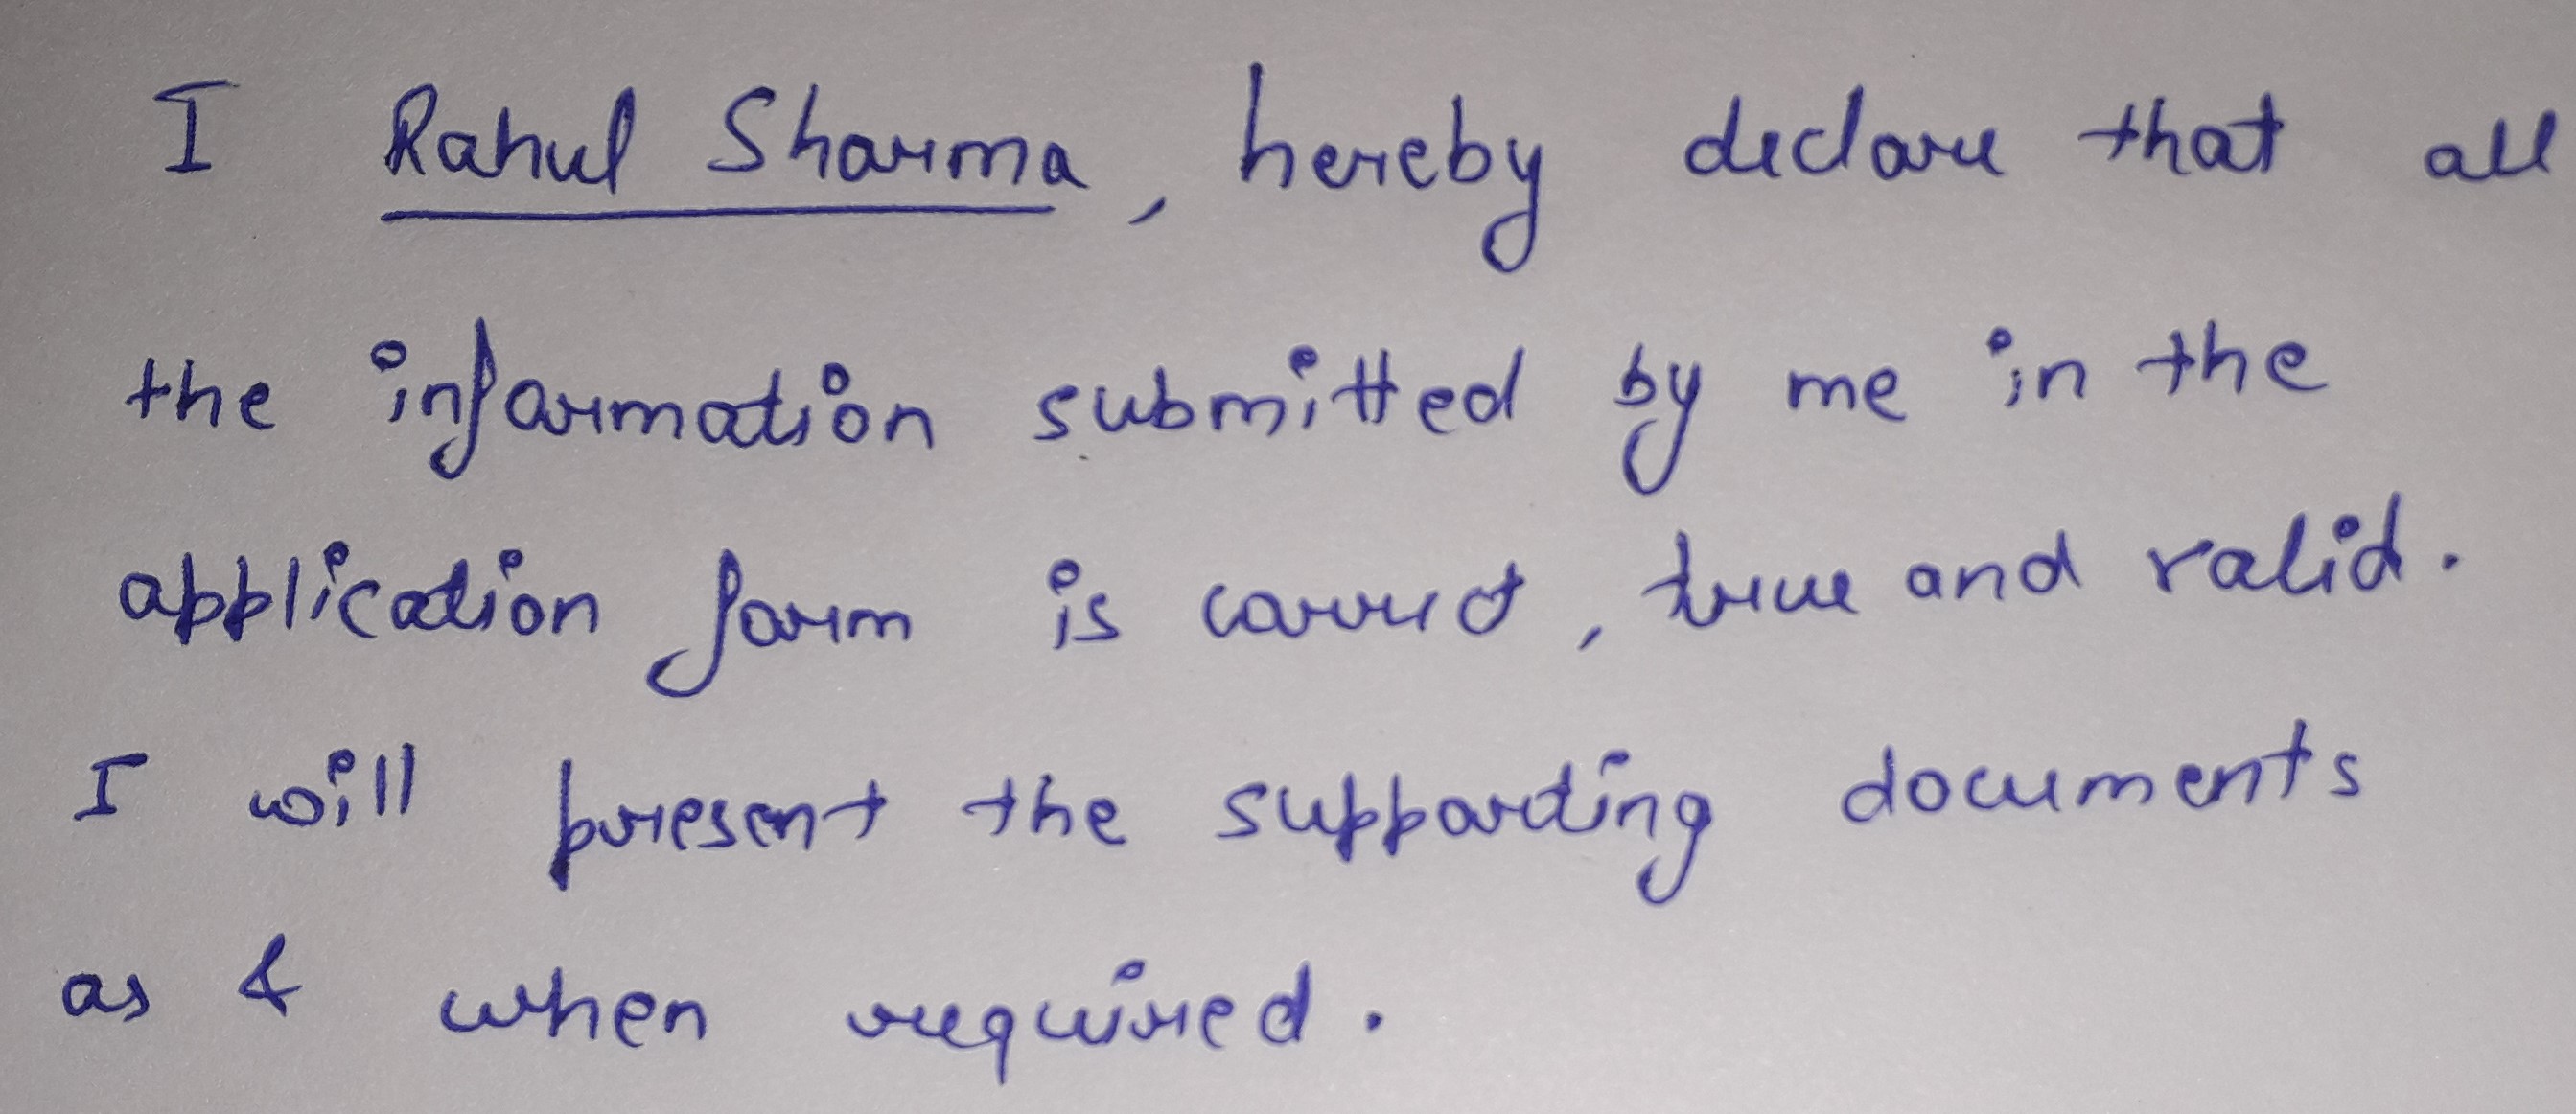 I Rahul Sharma, hereby declare that all
the information submitted by me in the
application form is correct, true and valid.
I will present the supporting documents
as & when required.